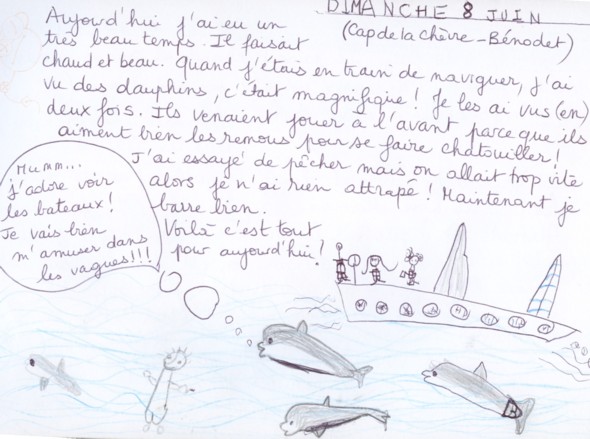 DIMANCHE 8 JUIN
(Cap de la chèvre - Bénodet)
Aujourd'hui j'ai eu un
très beau temps. Il faisait
chaud et beau. Quand j'étais en train de naviguer, j'ai
vu des dauphins, c'était magnifique! Je les ai vus (en)
deux fois. Ils venaient jouer à l'avant parce que ils
aiment bien les remous pour se faire chatouiller!
J'ai essayé de pêcher mais on allait trop vite
alors je n'ai rien attrapé! Maintenant je
barre bien.
Voilà c'est tout
pour aujourd'hui!
Mumm...
j'adore voir
les bateaux!
Je vais bien
m'amuser dans
les vagues!!!